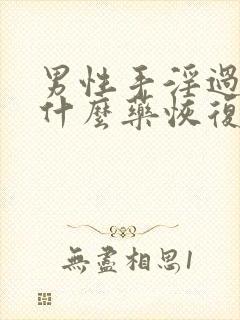 男性手淫過
什麼藥恢復
無盡相思1